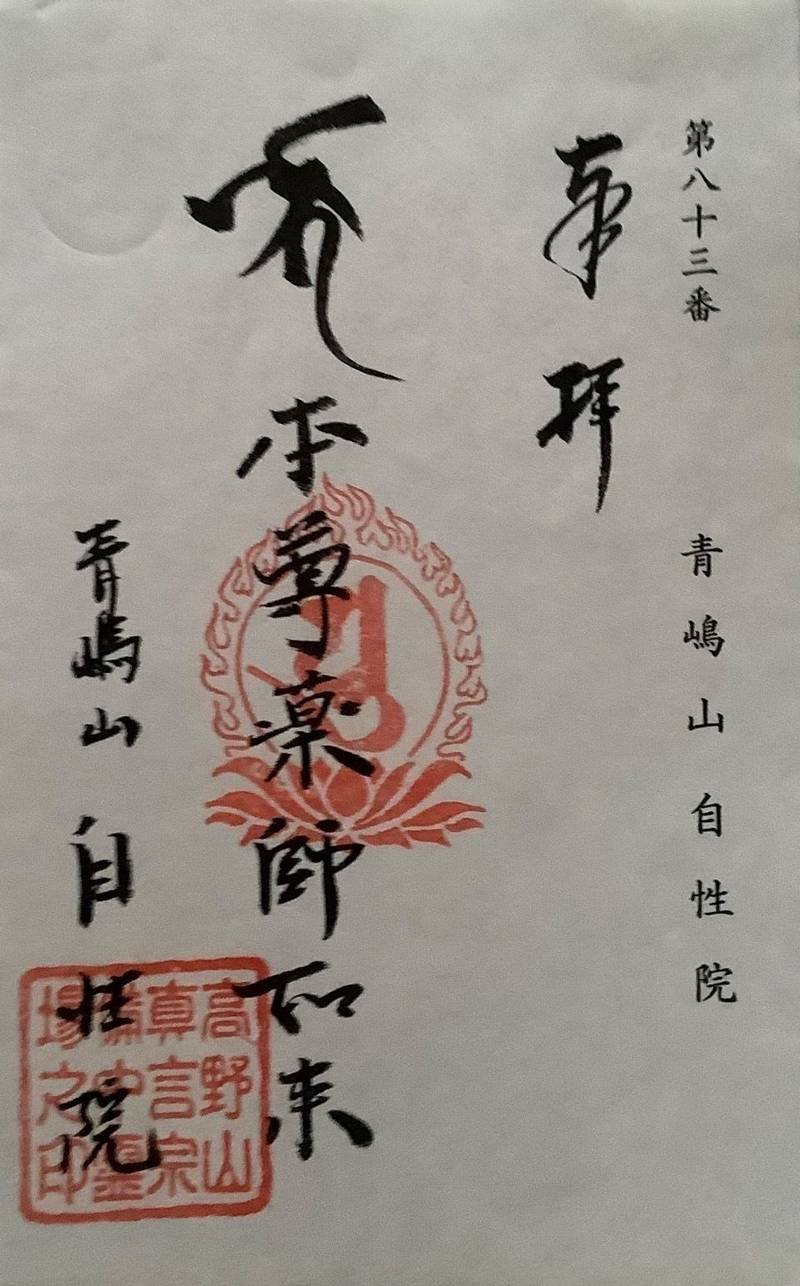 第八十三番
青嶋山自性院
奉拝
本尊薬師如来
青嶋山自性院
高野山
真言宗
霊
場之印